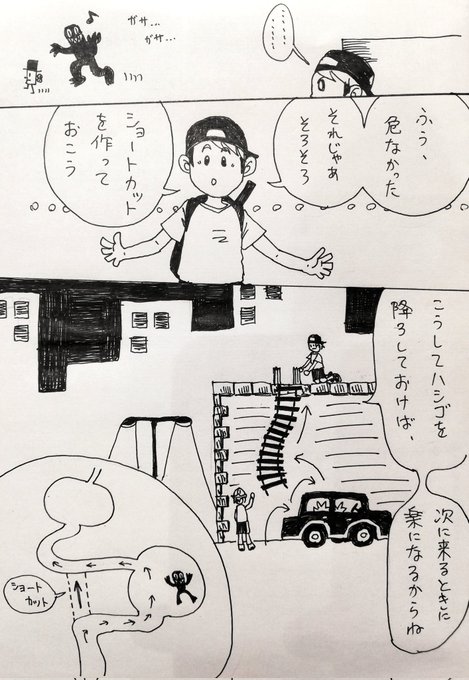 ・・・・・・
ガサ…
ガサ…
ふう、
危なかった
それじゃあ
そろそろ
ショートカット
を作って
おこう
こうしてハシゴを
降ろしておけば、
次に来るときに
楽になるからね
ショート
カット